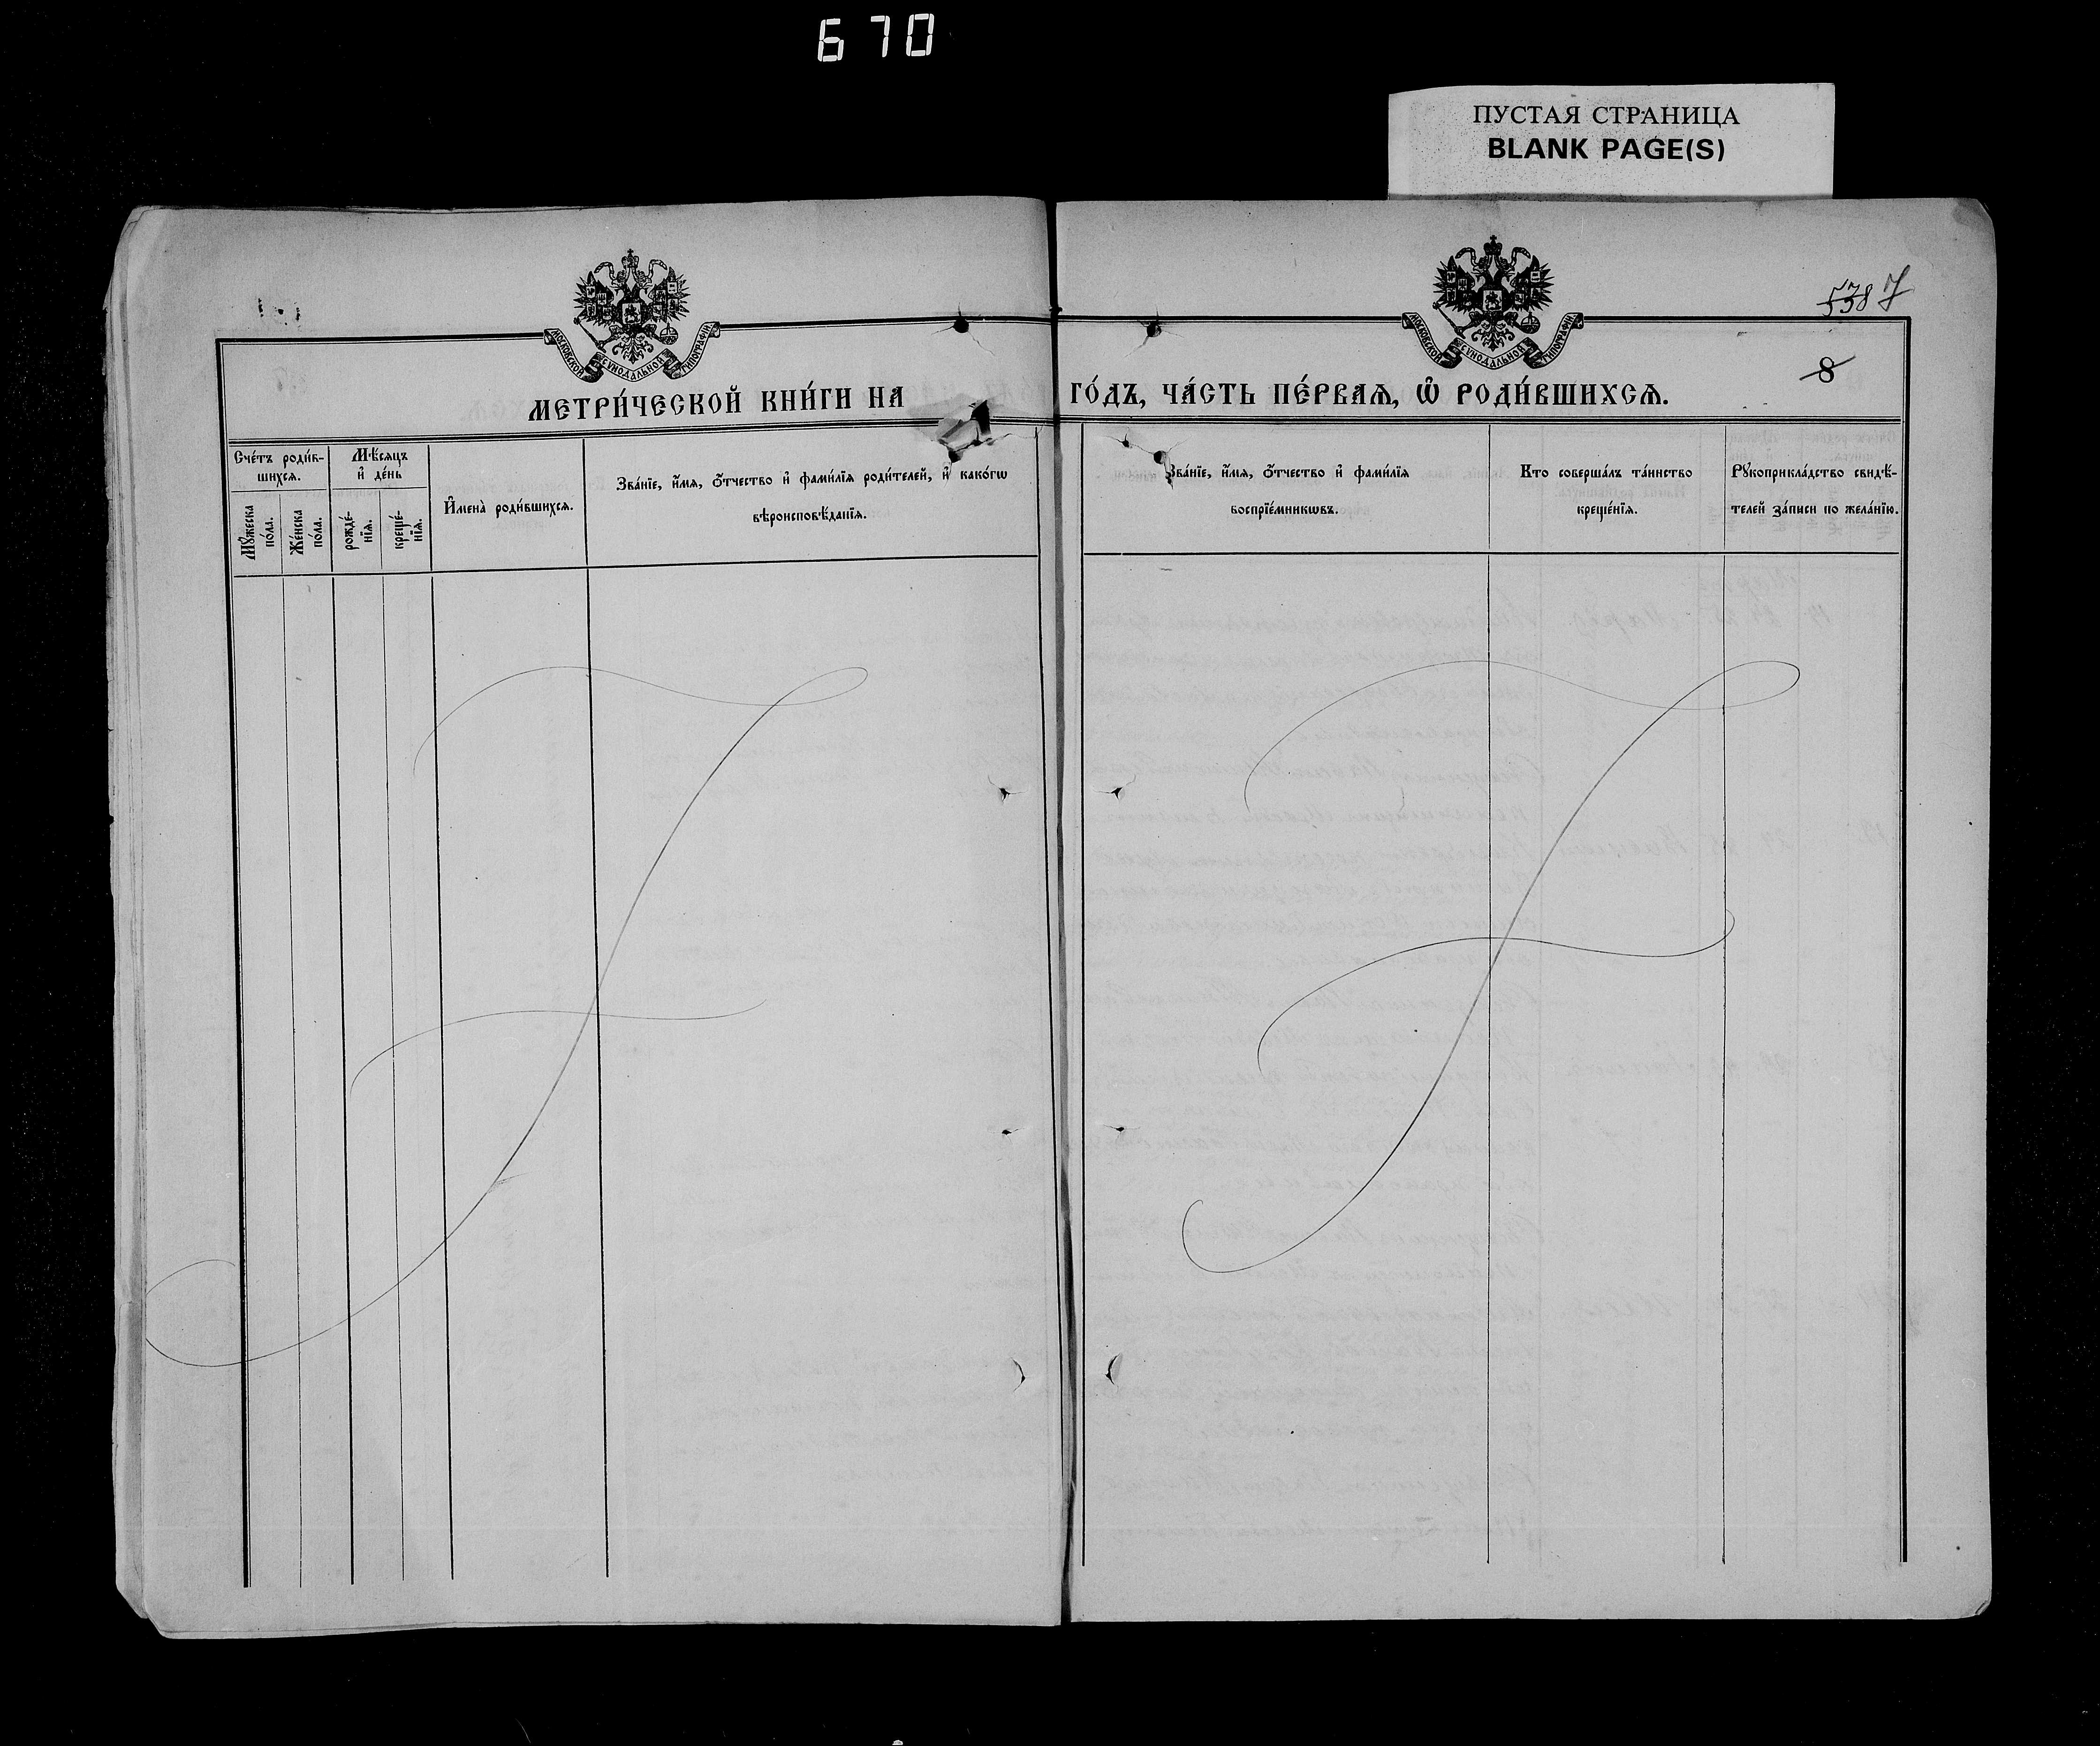 670
ПУСТАЯ СТРАНИЦА
BLANK PAGE(S)
МОСКОВСКОЙ СУНОДАЛЬНОЙ ТИПОГРАФІИ
МОСКОВСКОЙ СУНОДАЛЬНОЙ ТИПОГРАФІИ
538 7
8
МЕТРИ́ЧЕСКОЙ КНИ́ГИ НА ГО́ДЪ, ЧА́СТЬ ПЕ́РВАѦ, Ѽ РОДИ́ВШИХСѦ.
Сче́тъ роди́в-
шихсѧ.
Мꙋ́жеска
по́ла.
Же́нска
по́ла.
Мѣ́сѧцъ
и҆ де́нь
рожде́-
нїѧ.
креще́-
нїѧ.
И҆мена̀ роди́вшихсѧ.
Зва́нїе, и҆́мѧ, о҆́тчество и҆ фами́лїѧ роди́телей, и҆ како́гѡ
вѣроисповѣ́данїѧ.
Зва́нїе, и҆́мѧ, о҆́тчество и҆ фами́лїѧ
воспрїе́мникѡвъ.
Кто соверша́лъ та́инство
креще́нїѧ.
Рꙋкоприкла́дство свидѣ́-
телей за́писи по жела́нїю.